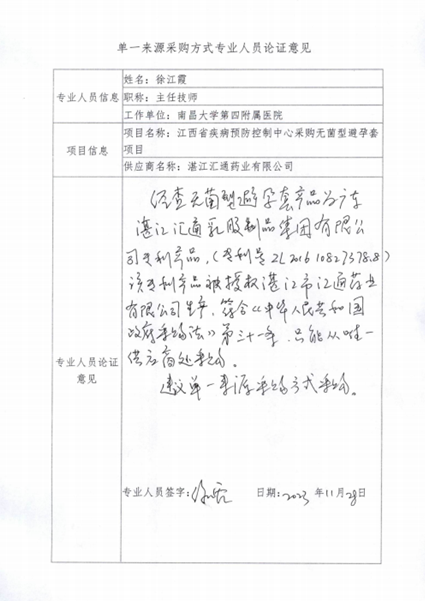 单一来源采购方式专业人员论证意见
专业人员信息
姓名：徐江霞
职称：主任技师
工作单位：南昌大学第四附属医院
项目信息
项目名称：江西省疾病预防控制中心采购无菌型避孕套
项目
供应商名称：湛江汇通药业有限公司
专业人员论证
意见
经查无菌型避孕套产品为广东
湛江汇通乳胶制品集团有限公
司专利产品，（专利号ZL2016 10827378.8）
该专利产品被授权湛江市汇通药业
有限公司生产，符合《中华人民共和国
政府采购法》第三十一条，只能从唯一
供应商处采购。
建议单一来源采购方式采购。
专业人员签字：
日期：2023 年 11 月 28 日